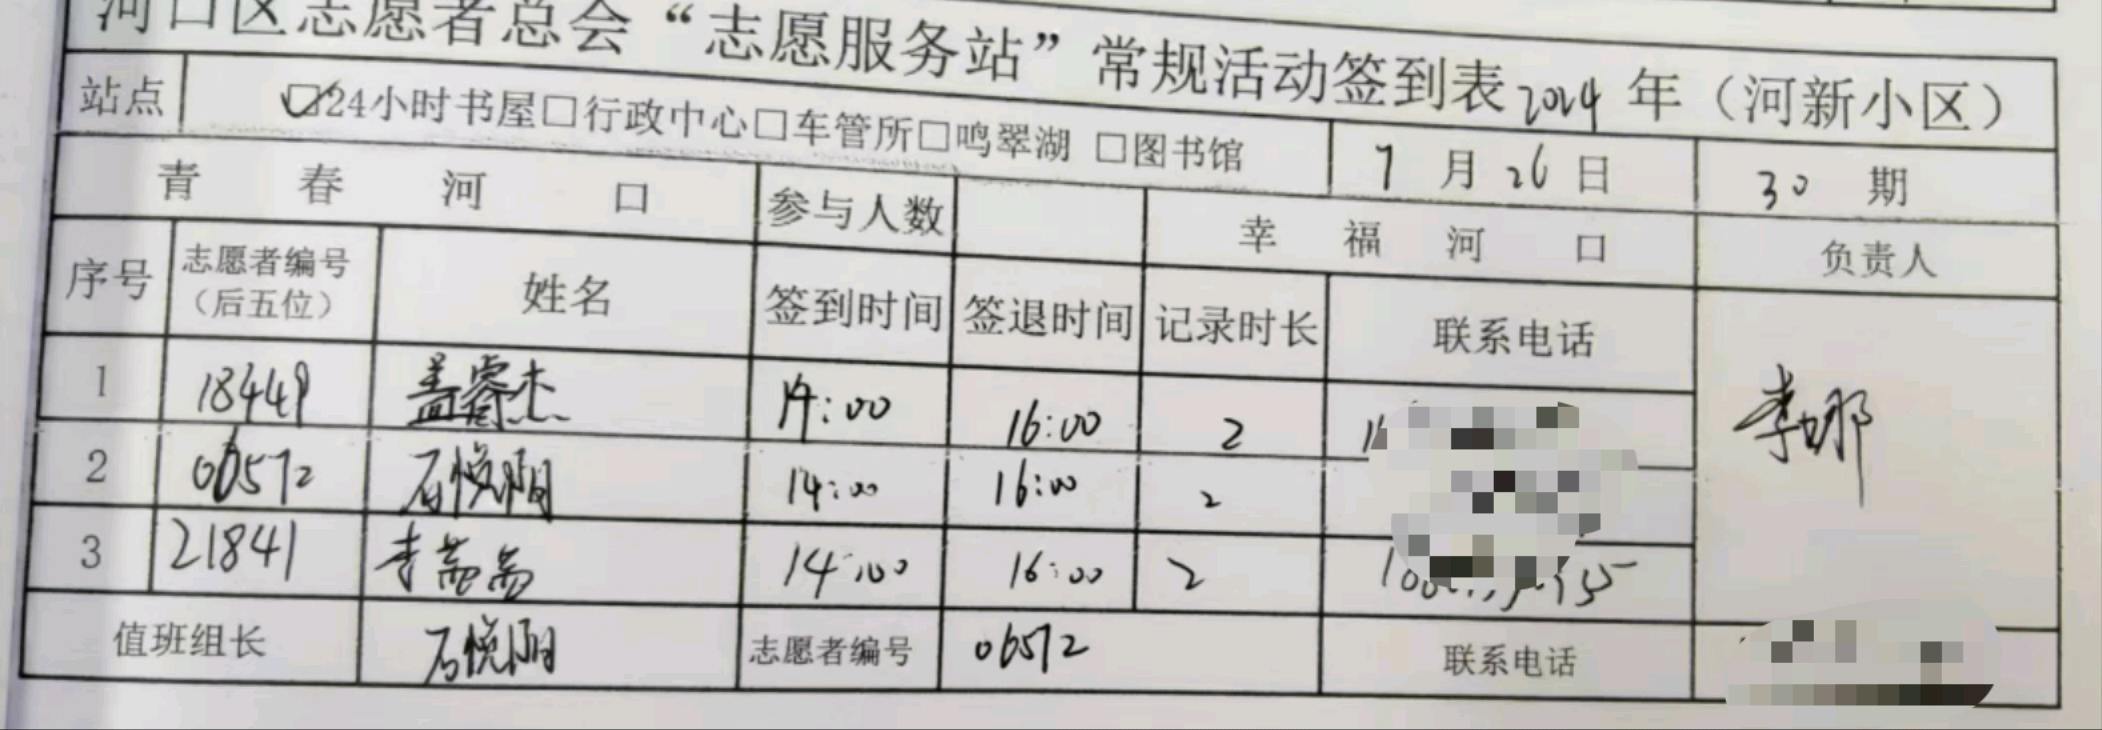 河口区志愿者总会“志愿服务站”常规活动签到表2024年（河新小区）
站点 ☑24小时书屋□行政中心□车管所□鸣翠湖 □图书馆 7月26日 30期
青春河口 参与人数 幸福河口 负责人
序号 志愿者编号（后五位） 姓名 签到时间 签退时间 记录时长 联系电话
1 18449 盖睿杰 14:00 16:00 2 李娜
2 06572 石悦阳 14:00 16:00 2
3 21841 李喆 14:00 16:00 2
值班组长 石悦阳 志愿者编号 06572 联系电话